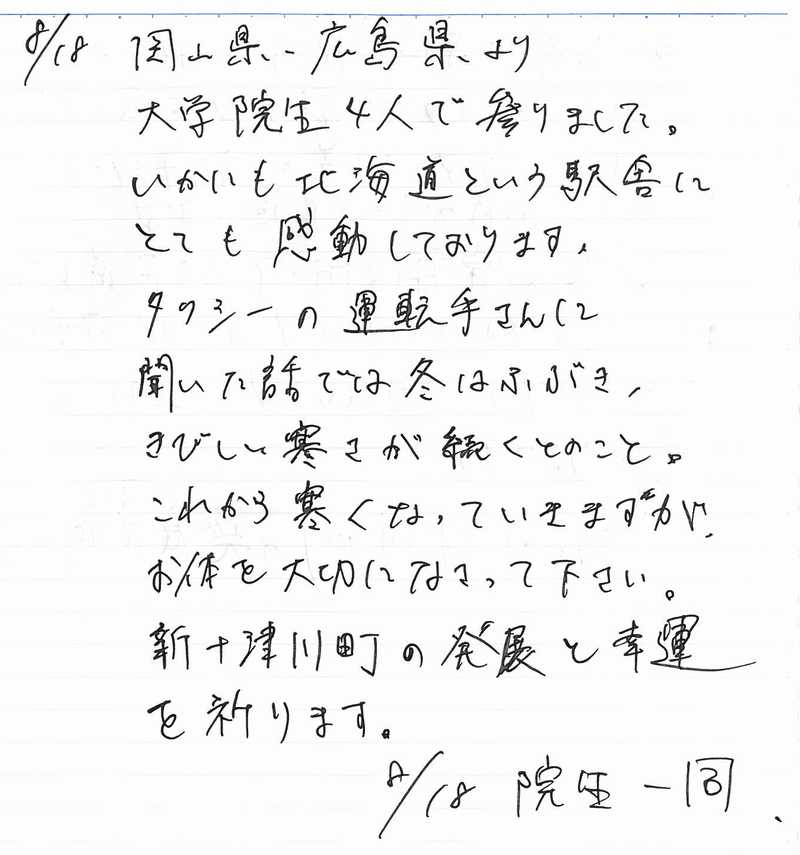 8/18 岡山県、広島県より
大学院生4人で参りました。
いかにも北海道という駅舎に
とても感動しております。
タクシーの運転手さんに
聞いた話では冬はふぶき、
きびしい寒さが続くとのこと。
これから寒くなっていきますが、
お体を大切になさって下さい。
新十津川町の発展と幸運
を祈ります。
8/18 院生一同、